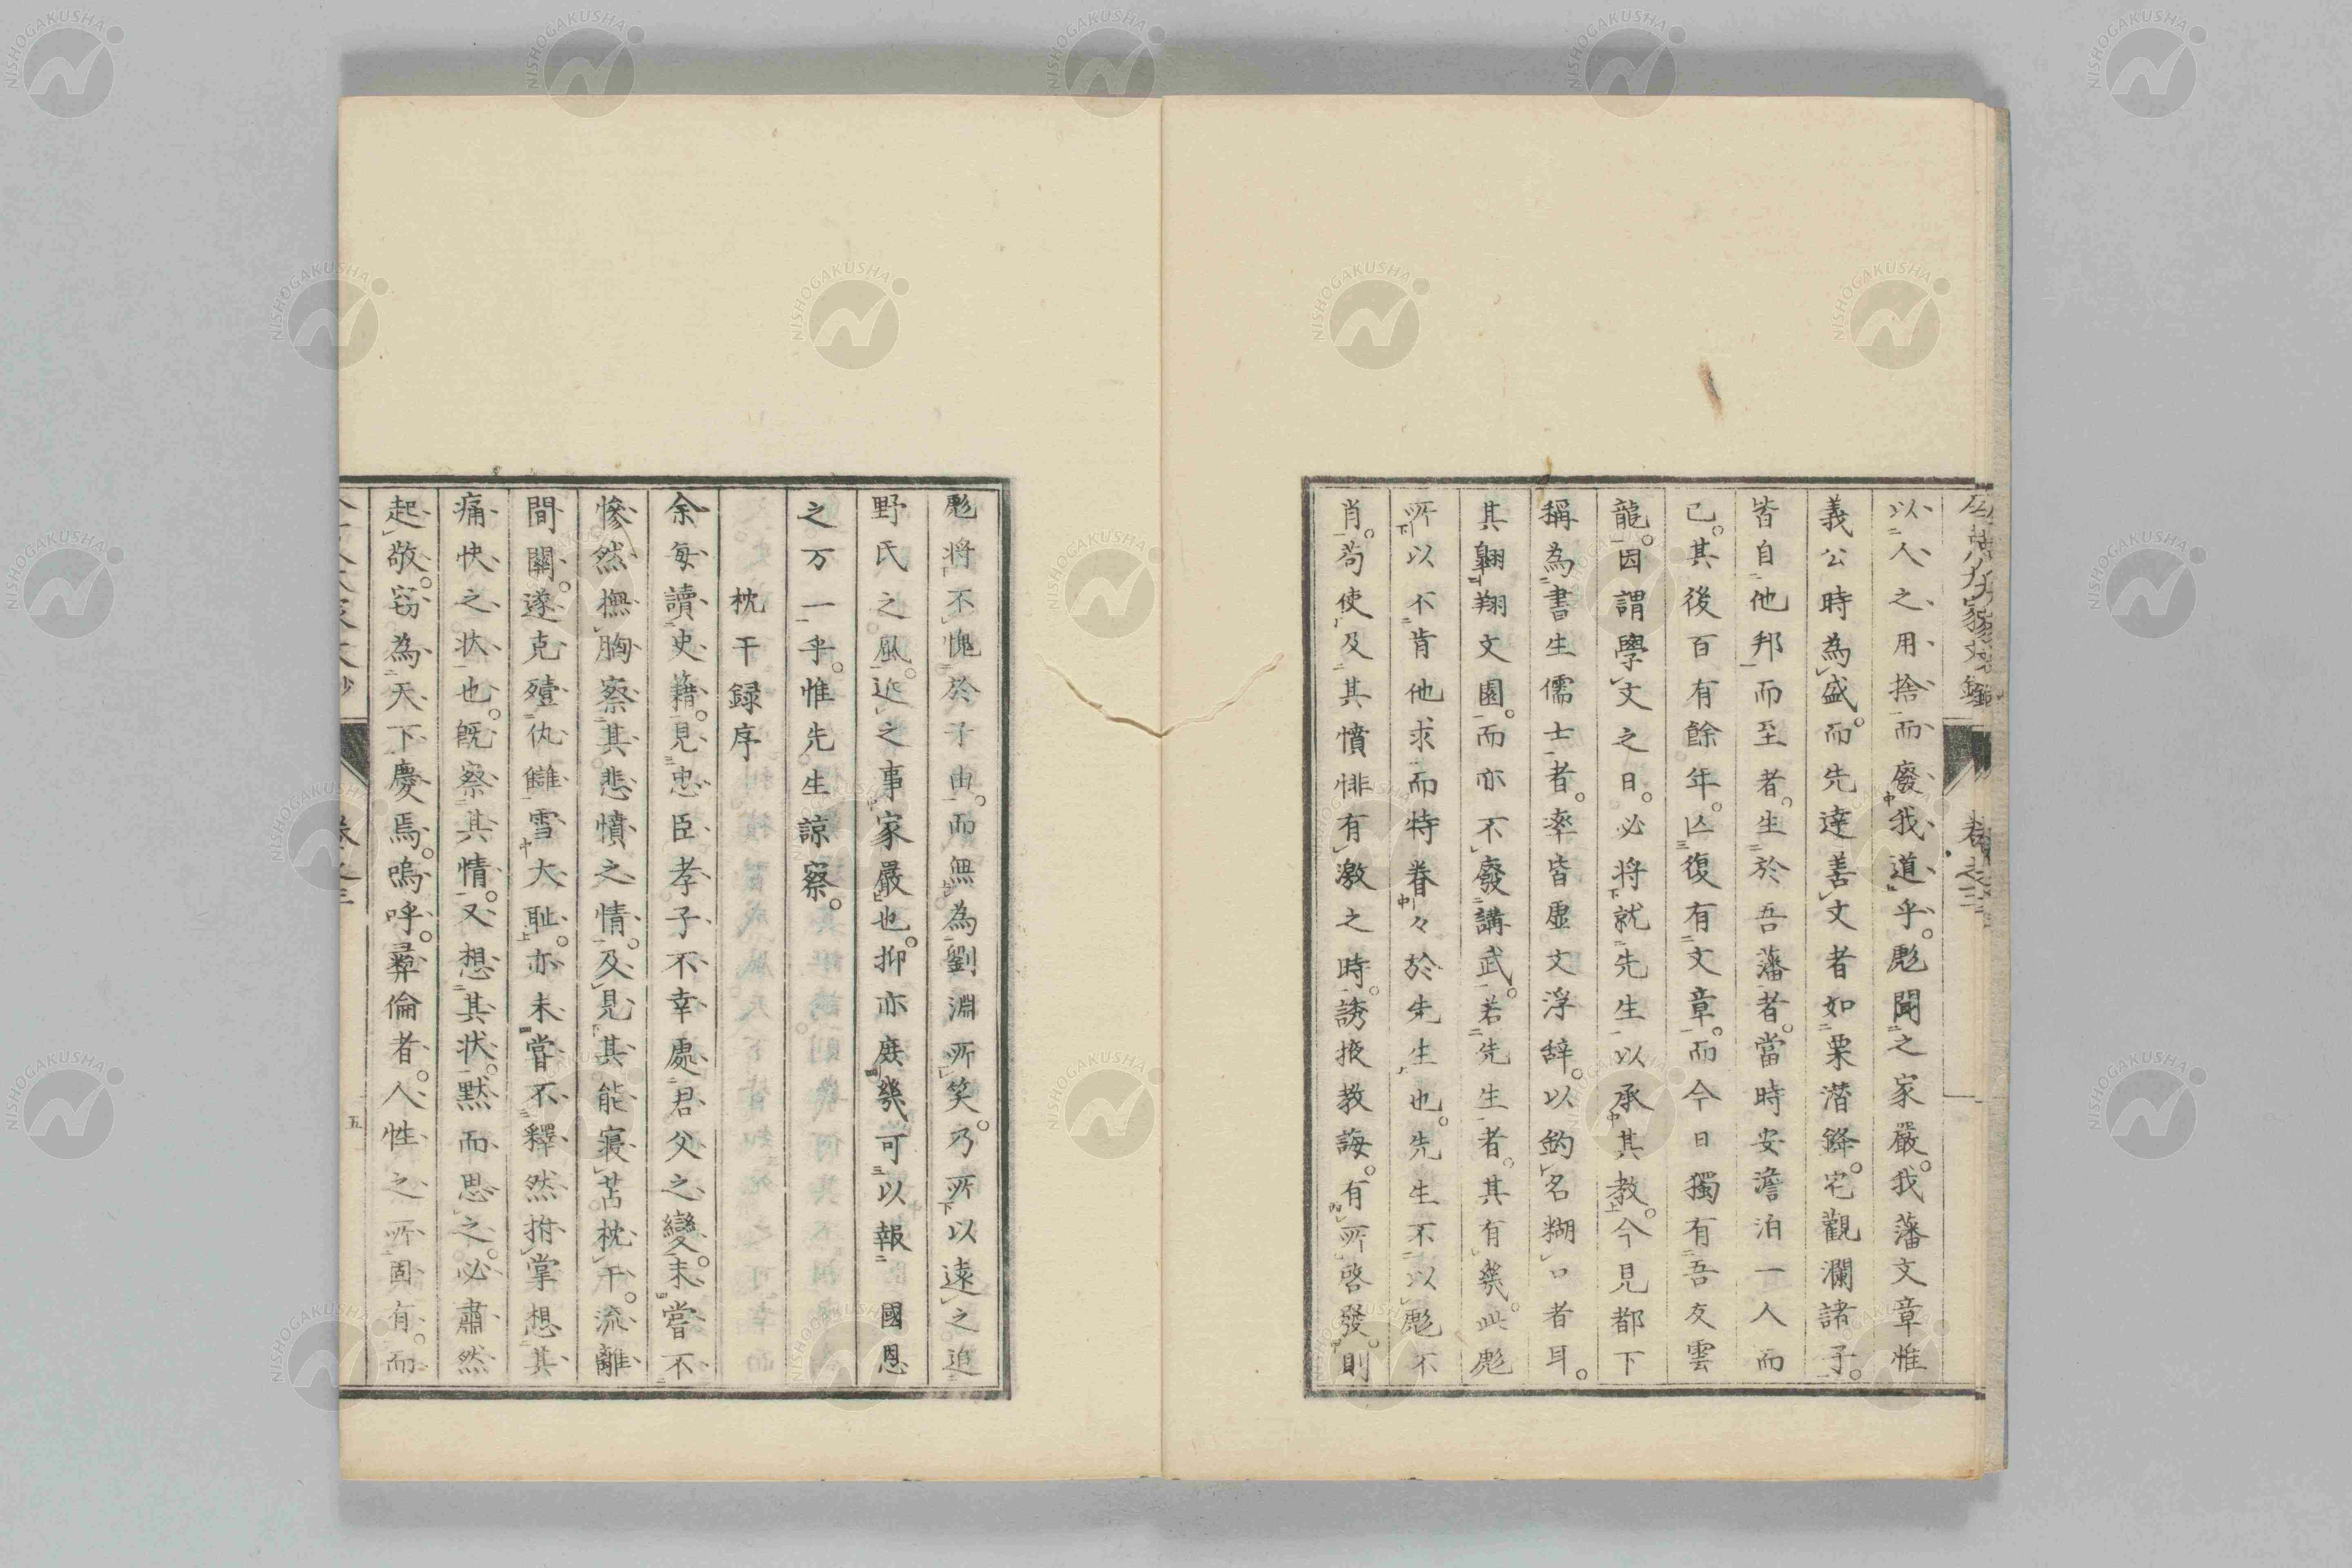 以人之用捨而廢我道乎。彪聞之家嚴。我藩文章惟
義公時為盛。而先達善文者如栗潛鋒。宅觀瀾諸子。
皆自他邦而至者。生於吾藩者。當時安澹泊一人而
已。其後百有餘年。亾復有文章。而今日獨有吾友雲
龍。因謂學文之日。必將就先生以承其教。今見都下
稱為書生儒士者。率皆虛文浮辞。以釣名糊口者耳。
其翺翔文園。而亦不廢講武。若先生者。其有幾。此彪
所以不肯他求而特眷々於先生也。先生不以彪不
肖。苟使及其憤悱有激之時。誘掖教誨。有所啓發。則
彪将不愧於子由。而無為劉淵所笑。乃所以遠之追
野氏之風。近之事家嚴也。抑亦庶幾可以報 國恩
之万一乎。惟先生諒察。
枕干録序
余每讀史籍。見忠臣孝子不幸處君父之變。未嘗不
慘然撫胸察其悲憤之情。及見其能寢苫枕干。流離
間關。遂克殪仇雠雪大耻。亦未嘗不釋然拊掌想其
痛快之状也。旣察其情。又想其状。黙而思之。必肅然
起敬。窃為天下慶焉。嗚呼。彛倫者。人性之所固有。而
卷之三
五
NISHOGAKUSHA